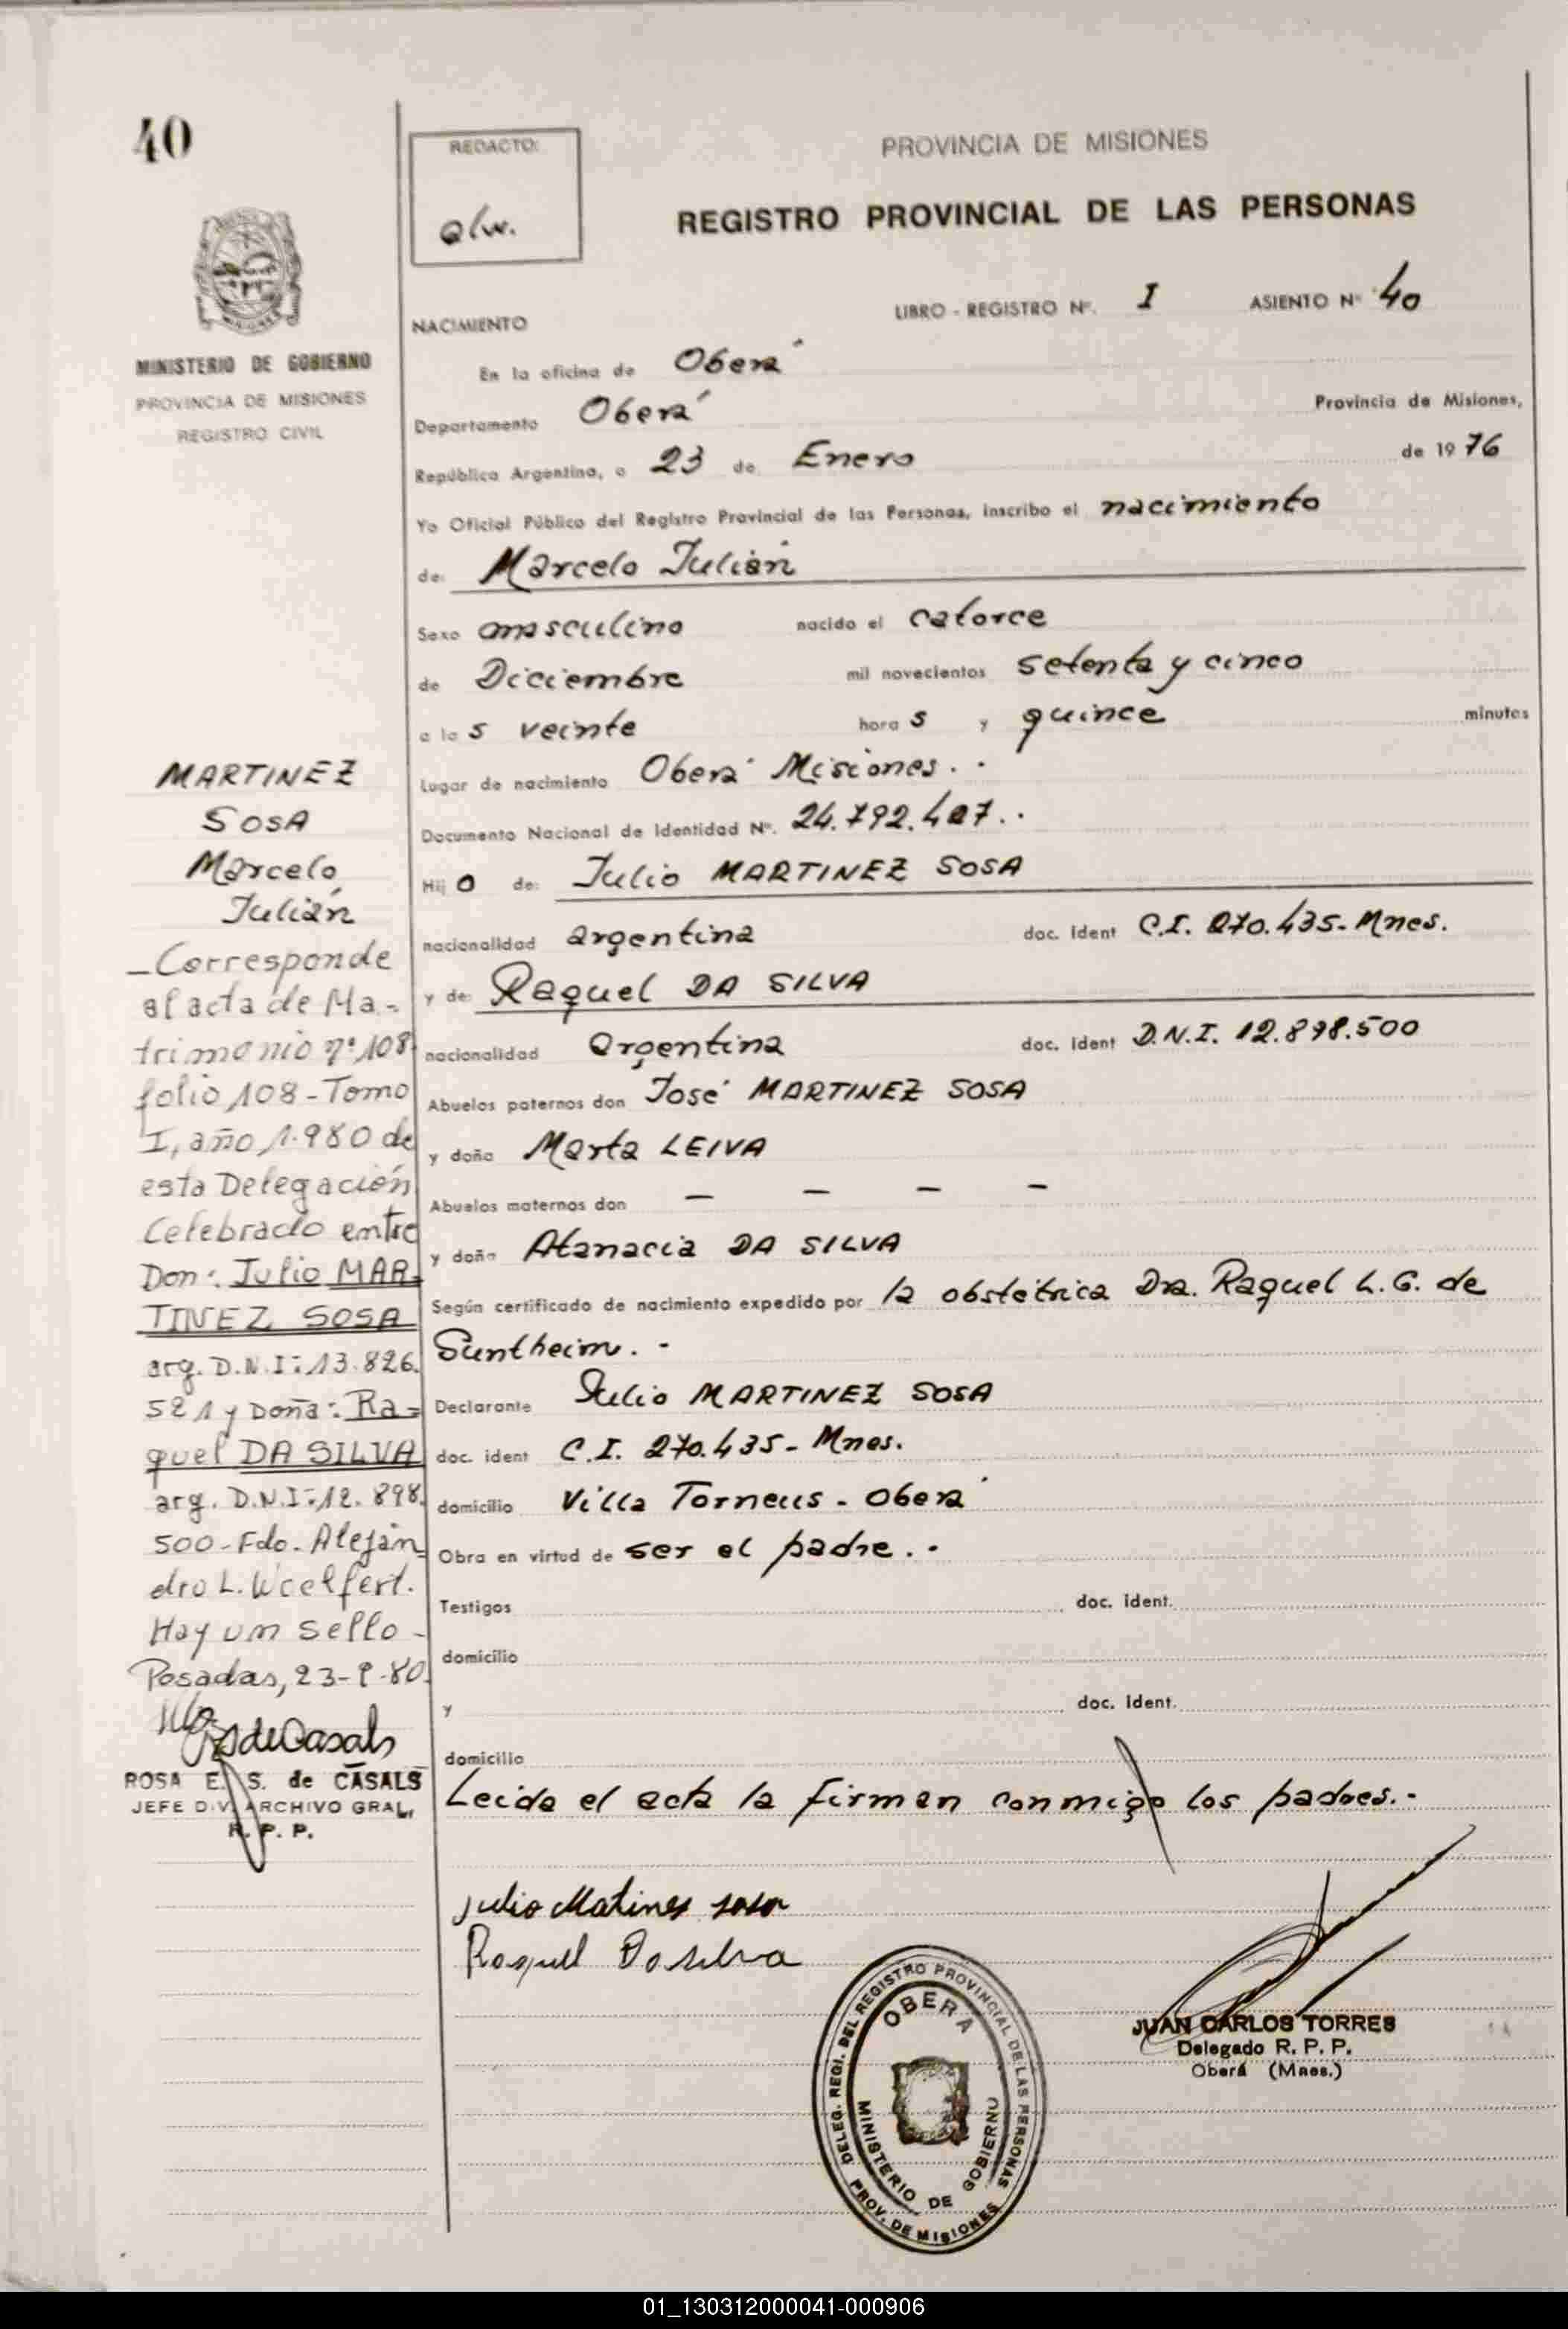 40
REDACTO:
alw.
PROVINCIA DE MISIONES
REGISTRO PROVINCIAL DE LAS PERSONAS
LIBRO - REGISTRO Nº. I ASIENTO Nº 40
NACIMIENTO
MINISTERIO DE GOBIERNO
PROVINCIA DE MISIONES
REGISTRO CIVIL
En la oficina de Oberá
Departamento Oberá Provincia de Misiones,
República Argentina, a 23 de Enero de 1976
Yo Oficial Público del Registro Provincial de las Personas, inscribo el nacimiento
de: Marcelo Julián
Sexo masculino nacido el catorce
de Diciembre mil novecientos setenta y cinco
a las veinte horas y quince minutos
Lugar de nacimiento Oberá Misiones. -
Documento Nacional de Identidad Nº. 24.792.407. -
Hijo de: Julio MARTINEZ SOSA
nacionalidad argentina doc. ident C.I. 270.435- Mnes.
y de: Raquel DA SILVA
nacionalidad Argentina doc. ident D.N.I. 12.898.500
Abuelos paternos don José MARTINEZ SOSA
y doña Marta LEIVA
Abuelos maternos don — — — —
y doña Atanacia DA SILVA
Según certificado de nacimiento expedido por la obstétrica Dra. Raquel L. G. de
Suntheim. -
Declarante Julio MARTINEZ SOSA
doc. ident C.I. 270.435- Mnes.
domicilio Villa Torneus - Oberá
Obra en virtud de ser el padre. -
Testigos doc. ident.
domicilio
y doc. ident.
domicilio
Leida el acta la firman conmigo los padres. -
Julio Matines sosa
Raquel Da silva
MARTINEZ
SOSA
Marcelo
Julián
- Corresponde
al acta de Ma-
trimonio nº 108
folio 108 - Tomo
I, año 1.980 de
esta Delegación
Celebrado entre
Don: Julio MAR-
TINEZ SOSA
arg. D.N.I: 13.826.
521 y Doña: Ra-
quel DA SILVA
arg. D.N.I: 12.898.
500 - Fdo. Alejan-
dro L. Woelfert.
Hay un sello -
Posadas, 23-9-80.
RSdeCasals
ROSA E. S. de CASALS
JEFE DIV. ARCHIVO GRAL,
R. P. P.
DELEG. REGI. DEL REGISTRO PROVINCIAL DE LAS PERSONAS
OBERA
MINISTERIO DE GOBIERNO
PROV. DE MISIONES
JUAN CARLOS TORRES
Delegado R. P. P.
Oberá (Mnes.)
01_130312000041-000906